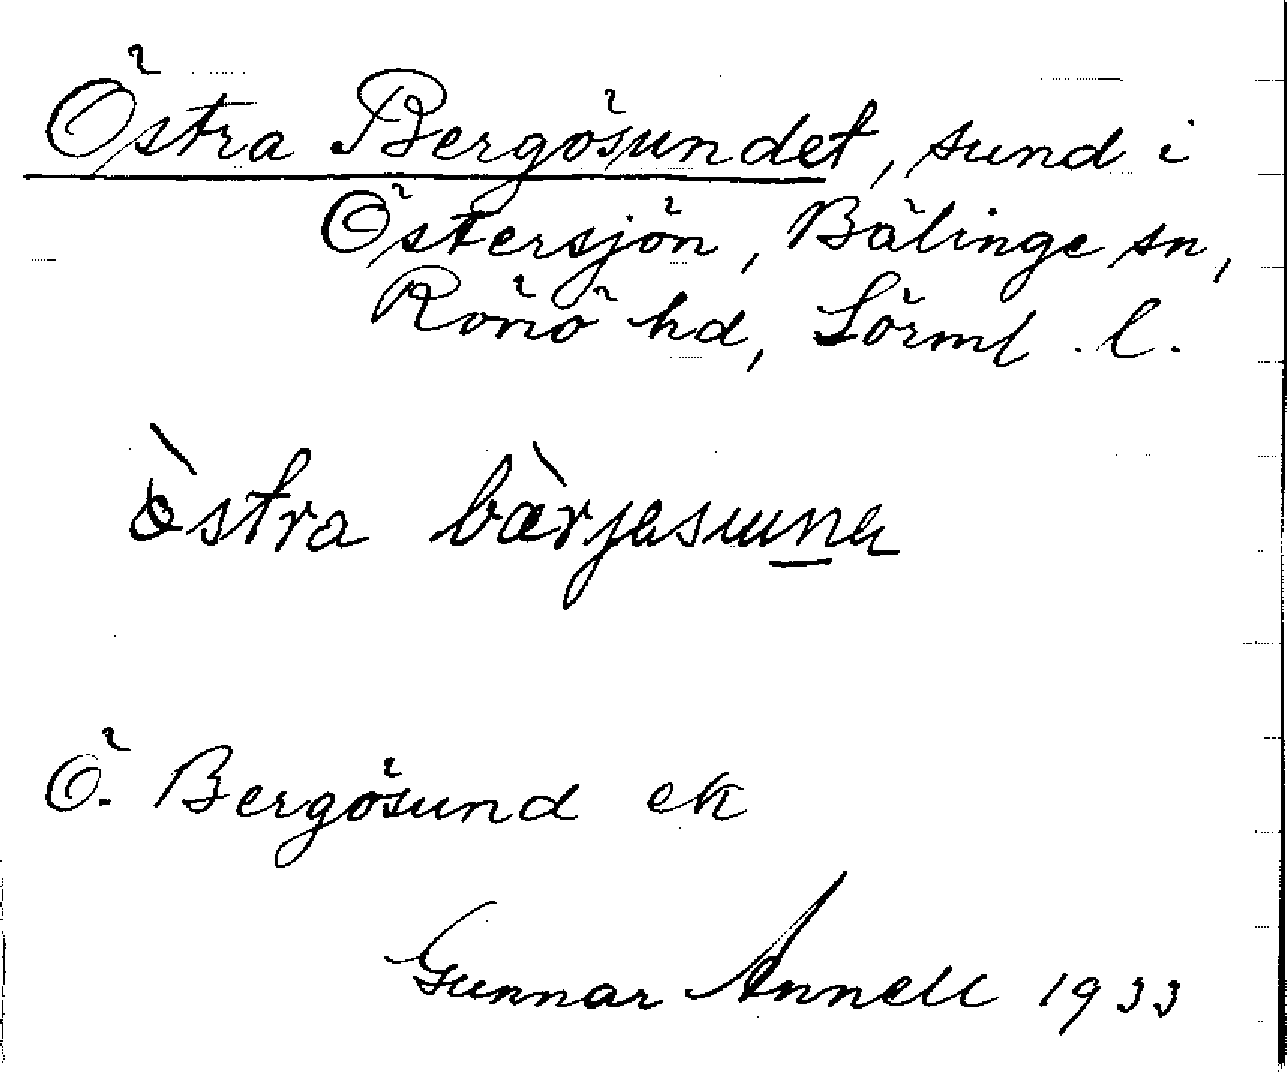 Östra Bergösundet, sund i
Östersjön, Bälinge sn,
Rönö hd, Sörml. l.
östra bærjasuna
Ö. Bergösund ek
Gunnar Annell 1933